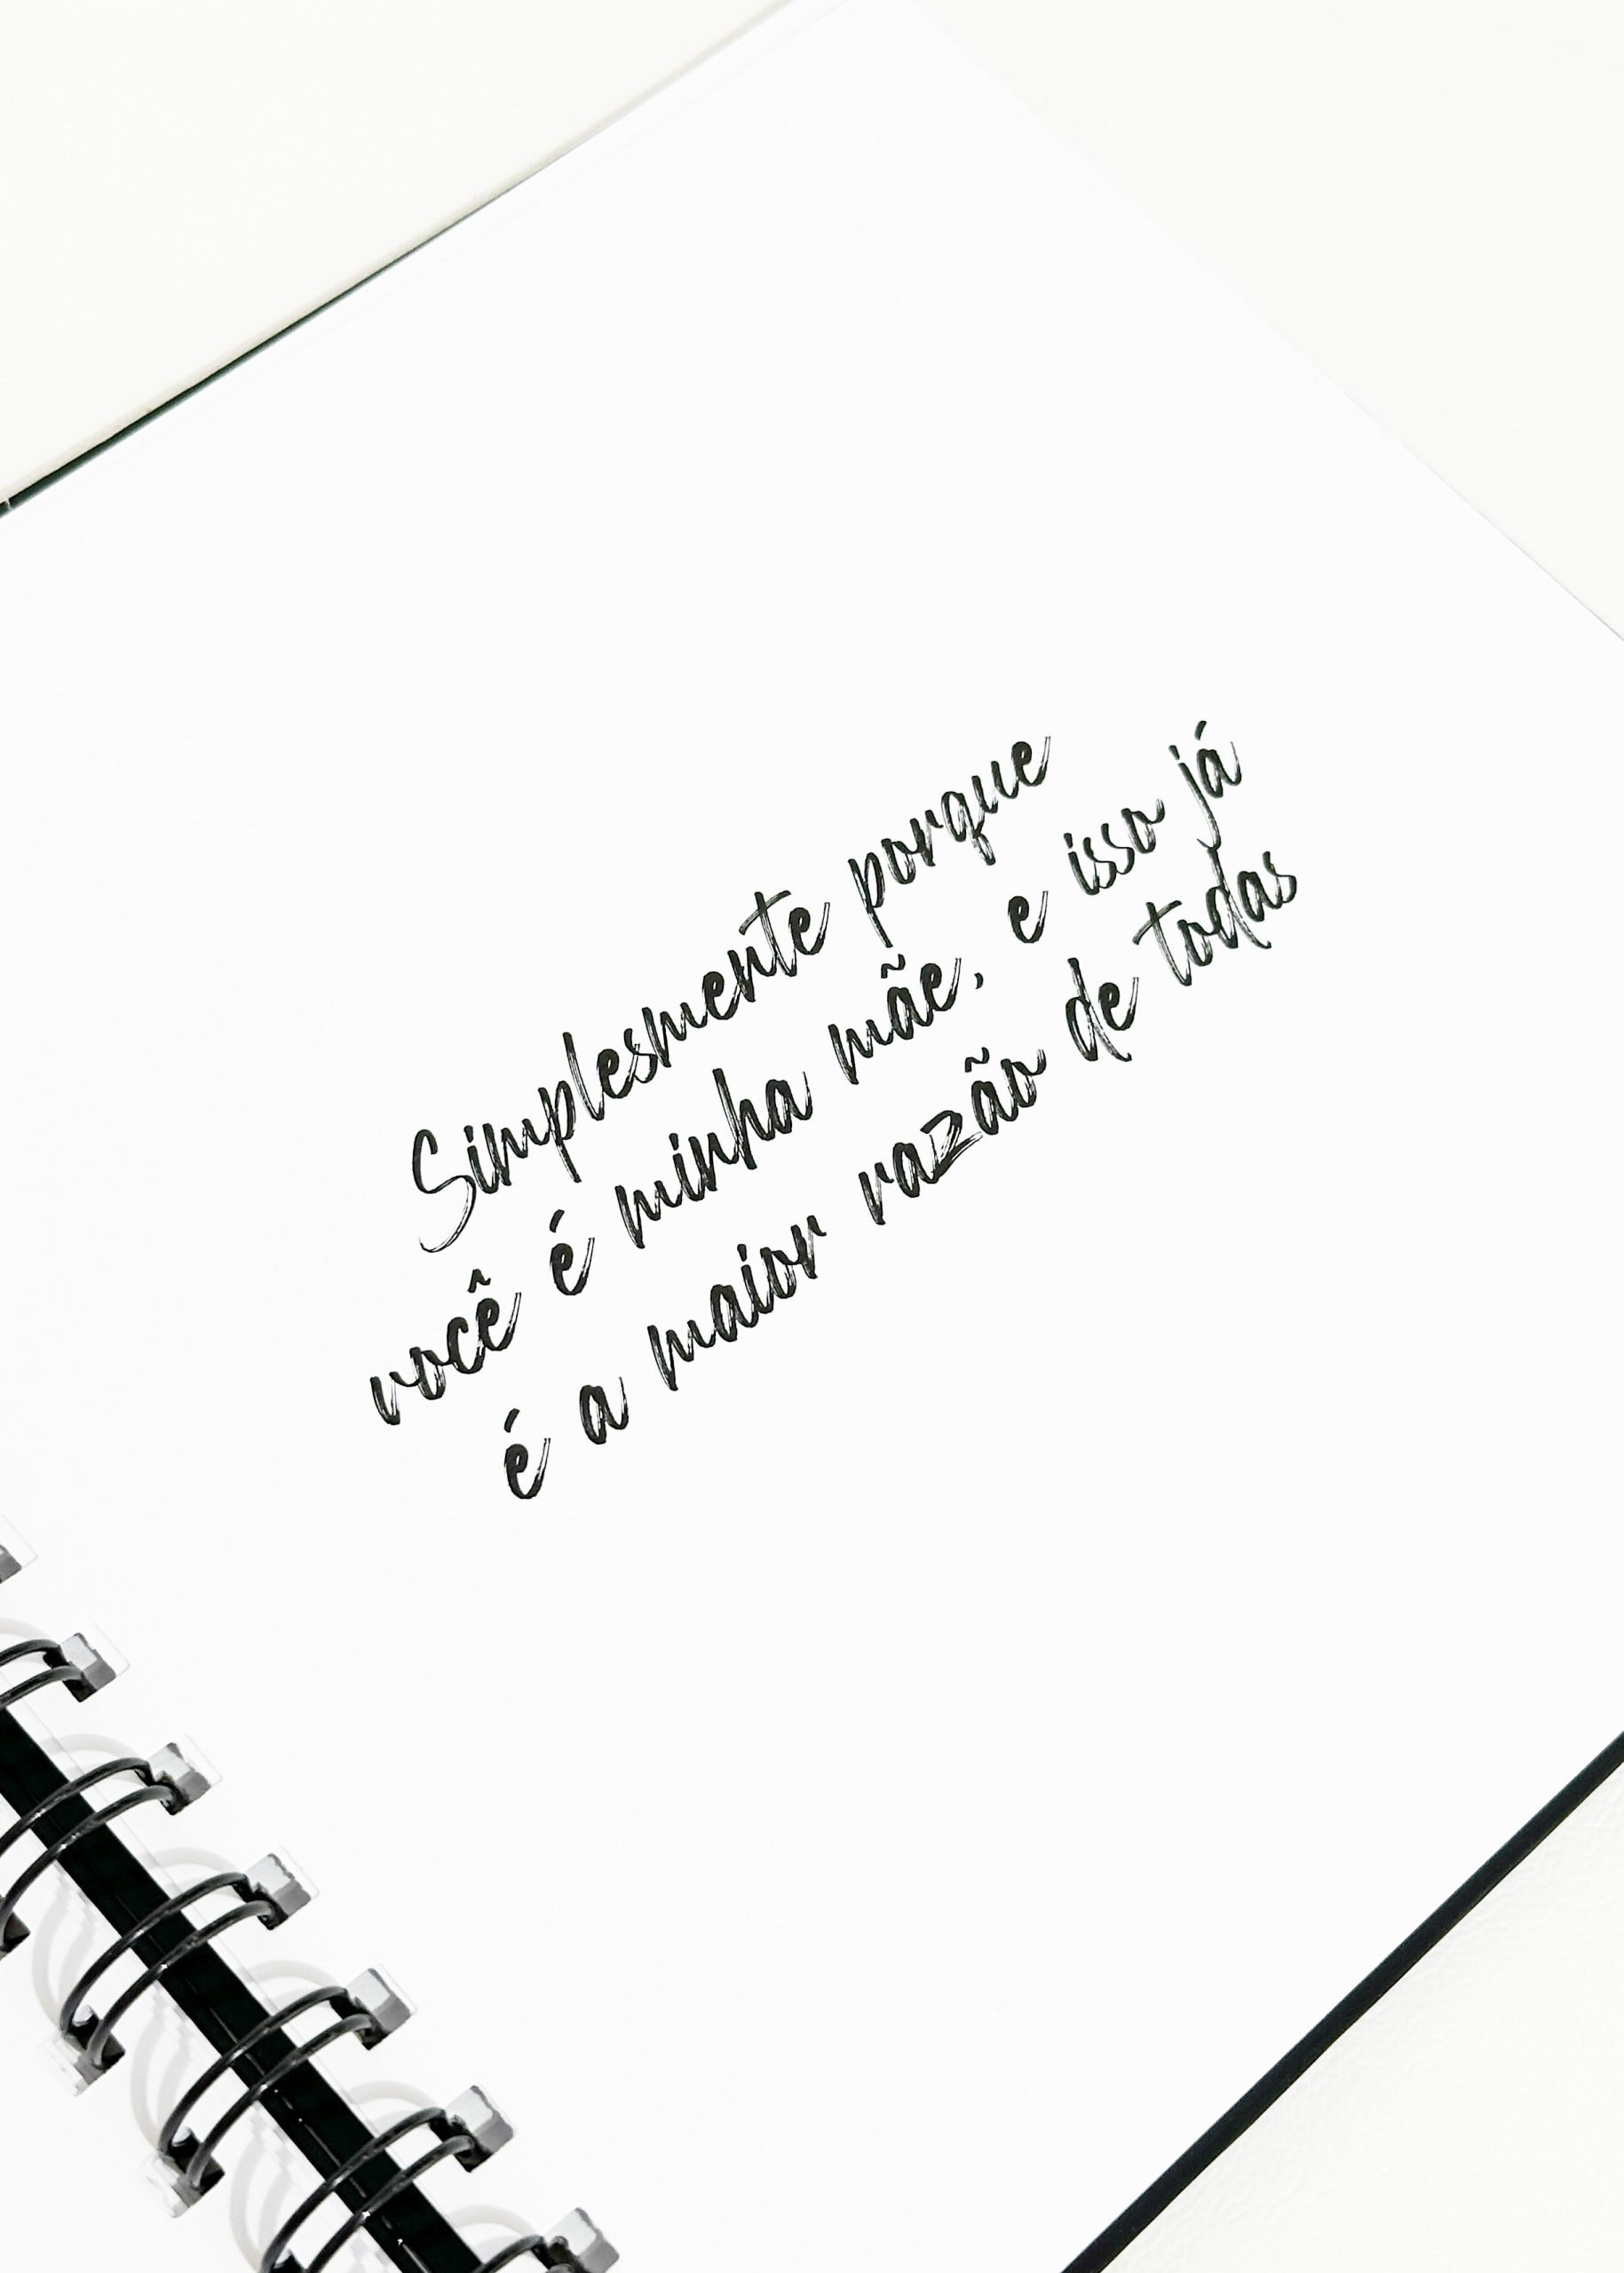 Simplesmente porque
você é minha mãe, e isso já
é a maior razão de todas